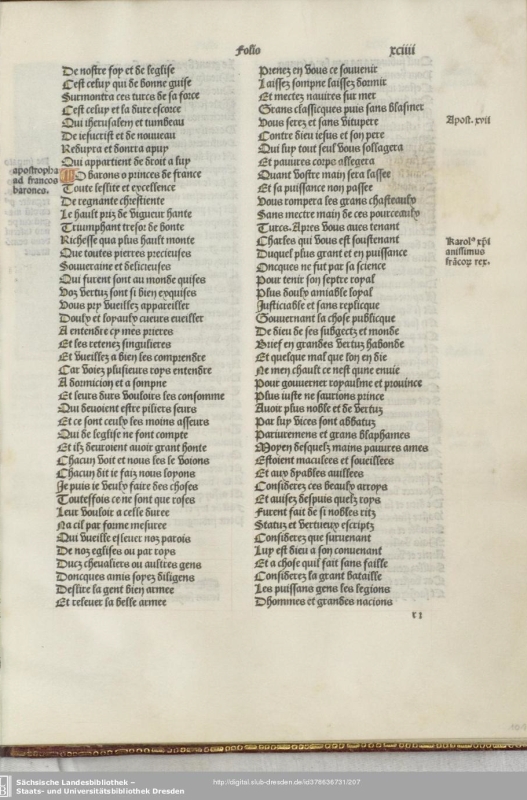 Folio xciiii
De nostre foy et de leglise
Cest celuy qui de bonne guise
Surmontra ces turcs de sa force
Cest celuy et la dure escorce
Qui iherusalem et tumbeau
De iesucrist et de nouueau
Reduyra et dontra apuy
Qui appartient de droit a luy
apostropha
ad francos
barones.
O barons o princes de france
Toute leslite et excellence
De regnante chrestiente
Le hault puiz de vigueur hante
Triumphant tresor de bonte
Richesse qua plus hault monte
Que toutes pierres precieuses
Souueraine et delicieuses
Qui furent sont au monde quises
Voz vertuz sont si bien exquises
Vous pry vueillez appareiller
Doulx et loyaulx cueurs esueiller
A entendre cy mes prieres
Et les retenez singulieres
Et vueillez a bien les comprendre
Car voiez plusieurs roys entendre
A dormicion et a sompne
Et leurs durs vouloirs les consomme
Qui deuoient estre piliers seurs
Et ce sont ceulx les moins asseurs
Qui de leglise ne font compte
Et ilz deuroient auoir grant honte
Chacun voit et nous les le voions
Chacun dit ie faiz nous loyons
Je puis ie veulx faire des choses
Toutesfois ce ne sont que roses
Leur vouloir a celle duree
Na cil par forme mesuree
Qui vueille esleuer noz parois
De noz eglises ou par roys
Ducz cheualiers ou aultres gens
Doncques amis soyez diligens
Deslire la gent bien armee
Et releuer sa belle armee
Prenez en vous ce souuenir
Laissez sompne laissez dormir
Et mectez nauires sur mer
Grans classicques puis sans blasmer
Vous serez et sans vitupere
Apost. xvii
Contre dieu iesus et son pere
Qui luy tout seul vous sollagera
Et pauures corps allegera
Quant vostre main sera lassee
Et sa puissance non passee
Vous rompera les grans chasteaulx
Sans mectre main de ces pourceaulx
Turcs. Apres vous aues tenant
Charles qui vous est soustenant
Karolus xpi
anissimus
francor rex.
Duquel plus grant et en puissance
Oncques ne fut par sa science
Pour tenir son septre royal
Plus doulx amiable loyal
Justiciable et sans replicque
Gouuernant la chose publicque
De dieu de ses subgectz et monde
Brief en grandes vertuz habonde
Et quelque mal que lon en die
Ne men chault ce nest qune enuie
Pour gouuerner royaulme et prouince
Plus iuste ne scaurions prince
Auoir plus noble et de vertuz
Par luy vices sont abbatuz
Pariuremens et grans blaphames
Moyen desquelz mains pauures ames
Estoient maculees et soueillees
Et aux dyables auillees
Considerez ces beaulx arroys
Et auisez despuis quelz roys
Furent fait de si nobles ritz
Statuz et vertueux escriptz
Considerez que suruenant
Luy est dieu a son conuenant
Et a chose quil fait sans faille
Considerez la grant bataille
Les puissans gens les legions
Dhommes et grandes nacions
r i
Sächsische Landesbibliothek –
Staats- und Universitätsbibliothek Dresden
http://digital.slub-dresden.de/id378636731/207